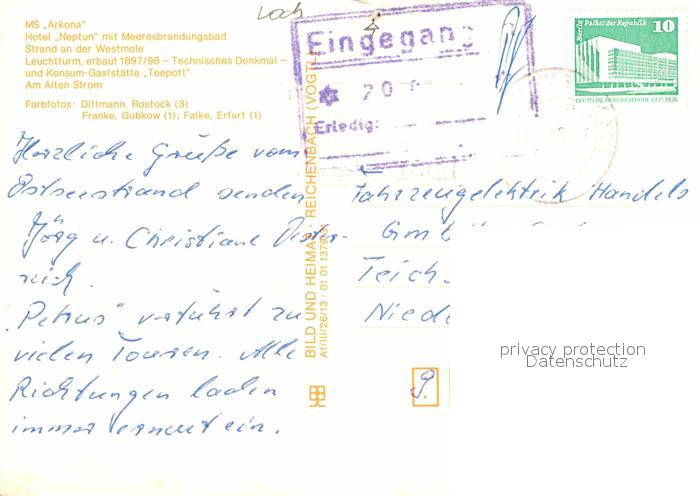 MS „Arkona"
Hotel „Neptun" mit Meeresbrandungsbad
Strand an der Westmole
Leuchtturm, erbaut 1897/98 – Technisches Denkmal –
und Konsum-Gaststätte „Teepott"
Am Alten Strom
Farbfotos: Dittmann, Rostock (3)
Franke, Gubkow (1); Falke, Erfurt (1)
Herzliche Grüße vom
Ostseestrand senden
Jörg u. Christiane
„Petrus" verführt zu
vielen Touren. Alle
Richtungen laden
immer erneut ein.
BILD UND HEIMAT REICHENBACH (VOGTL
A1/III/26/13
Eingegang
20
Erledig
Berlin Palast der Republik
10
DEUTSCHE DEMOKRATISCHE REPUBLIK
Fahrzeugelektrik Handels
Gmb
Teich
Niede
9
privacy protection
Datenschutz